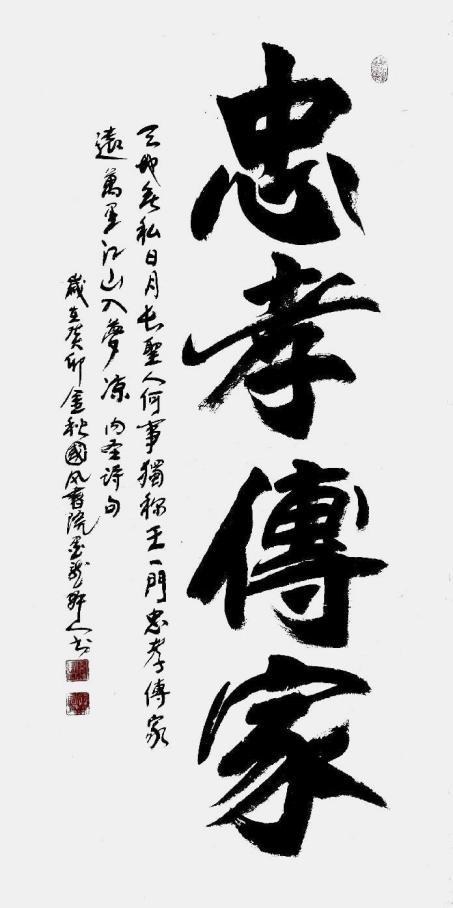 忠孝傳家
天地無私日月長聖人何事獨稱王一門忠孝傳家
遠萬里江山入夢涼 內圣詩句
歲在癸卯金秋國風書院墨龍軒人书